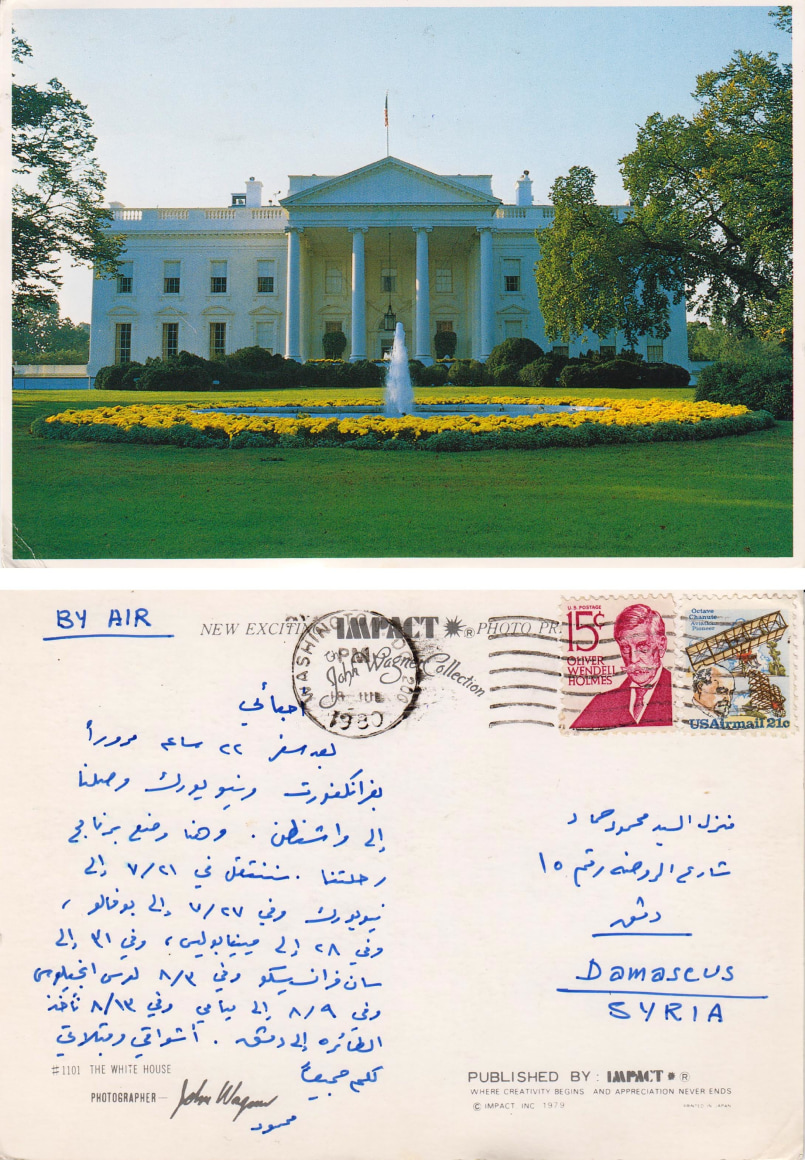 BY AIR
NEW EXCITING IMPACT ® PHOTO PR
John Wagner Collection
WASHINGTON D.C. 200
PM
18 JUL
1980
U.S. POSTAGE
15¢
OLIVER
WENDELL
HOLMES
Octave
Chanute
Aviation
Pioneer
USAirmail 21c
احبائي
بعد سفر ٢٢ ساعه مروراً
بفرانكفورت ونيويورك وصلنا
إلى واشنطن . وهنا وضع برنامج
رحلتنا . سننتقل في ٧/٢١ إلى
نيويورك وفي ٧/٢٧ إلى بوفالو ،
وفي ٢٨ إلى مينيابوليس ، وفي ٣١ إلى
سان فرانسيسكو وفي ٨/٣ لوس انجيلوس
وفي ٨/٩ إلى ميامي وفي ٨/١٣ نأخذ
الطائره إلى دمشق . أشواقي وقبلاتي
لكم جميعاً
محمود
منزل السيد محمود حماد
شارع الروضه رقم ١٥
دمشق
Damascus
SYRIA
#1101 THE WHITE HOUSE
PHOTOGRAPHER— John Wagner
PUBLISHED BY : IMPACT ®
WHERE CREATIVITY BEGINS AND APPRECIATION NEVER ENDS
© IMPACT INC 1979
PRINTED IN JAPAN